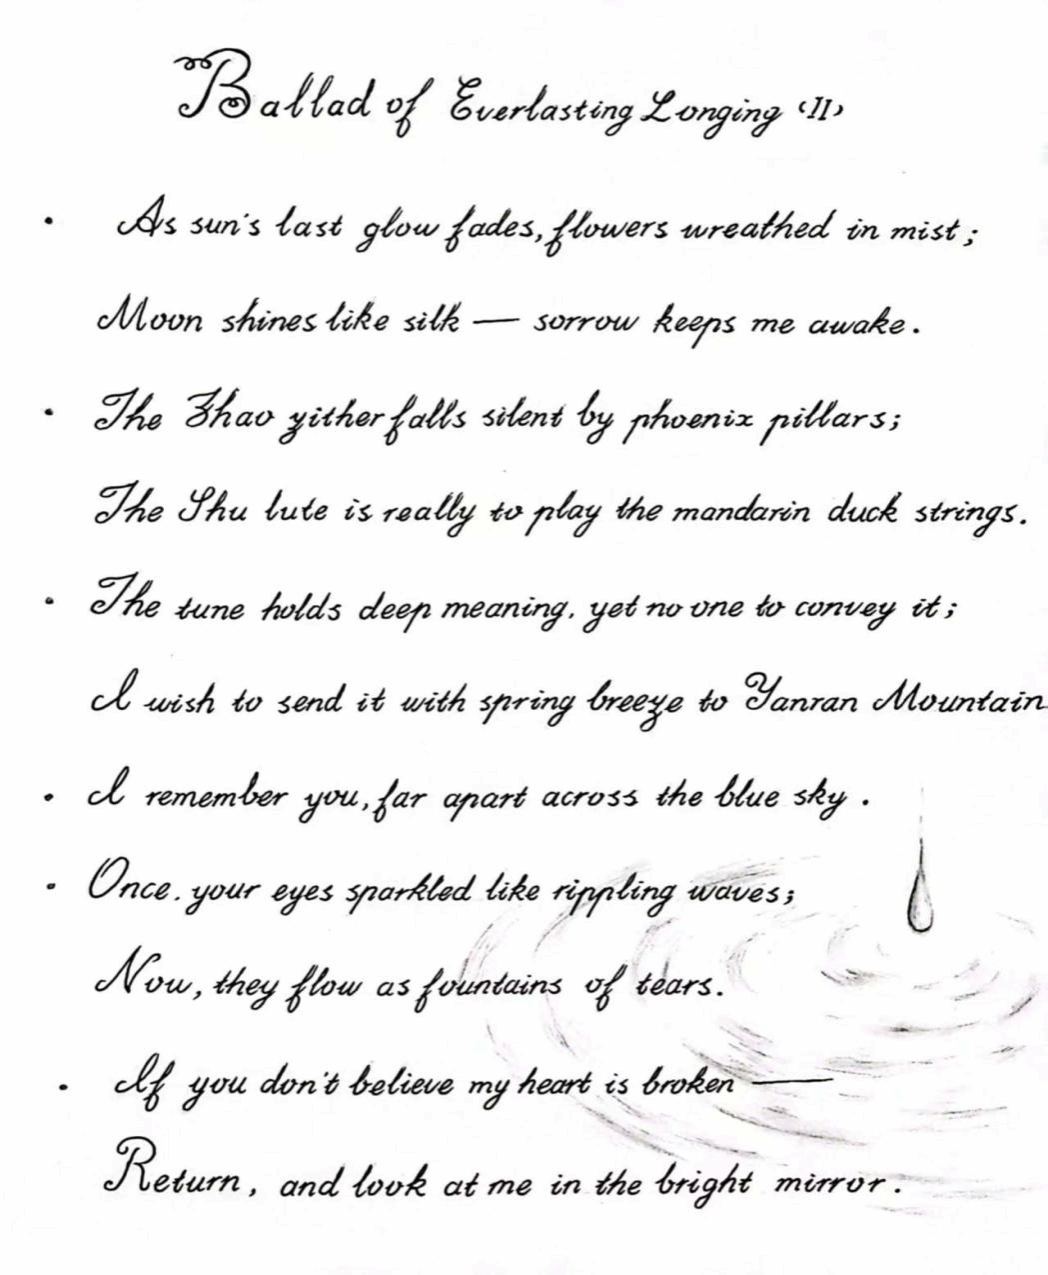 Ballad of Everlasting Longing <II>
• As sun's last glow fades, flowers wreathed in mist;
Moon shines like silk — sorrow keeps me awake.
• The Zhao zither falls silent by phoenix pillars;
The Shu lute is really to play the mandarin duck strings.
• The tune holds deep meaning, yet no one to convey it;
I wish to send it with spring breeze to Yanran Mountain.
• I remember you, far apart across the blue sky.
• Once, your eyes sparkled like rippling waves;
Now, they flow as fountains of tears.
• If you don't believe my heart is broken —
Return, and look at me in the bright mirror.